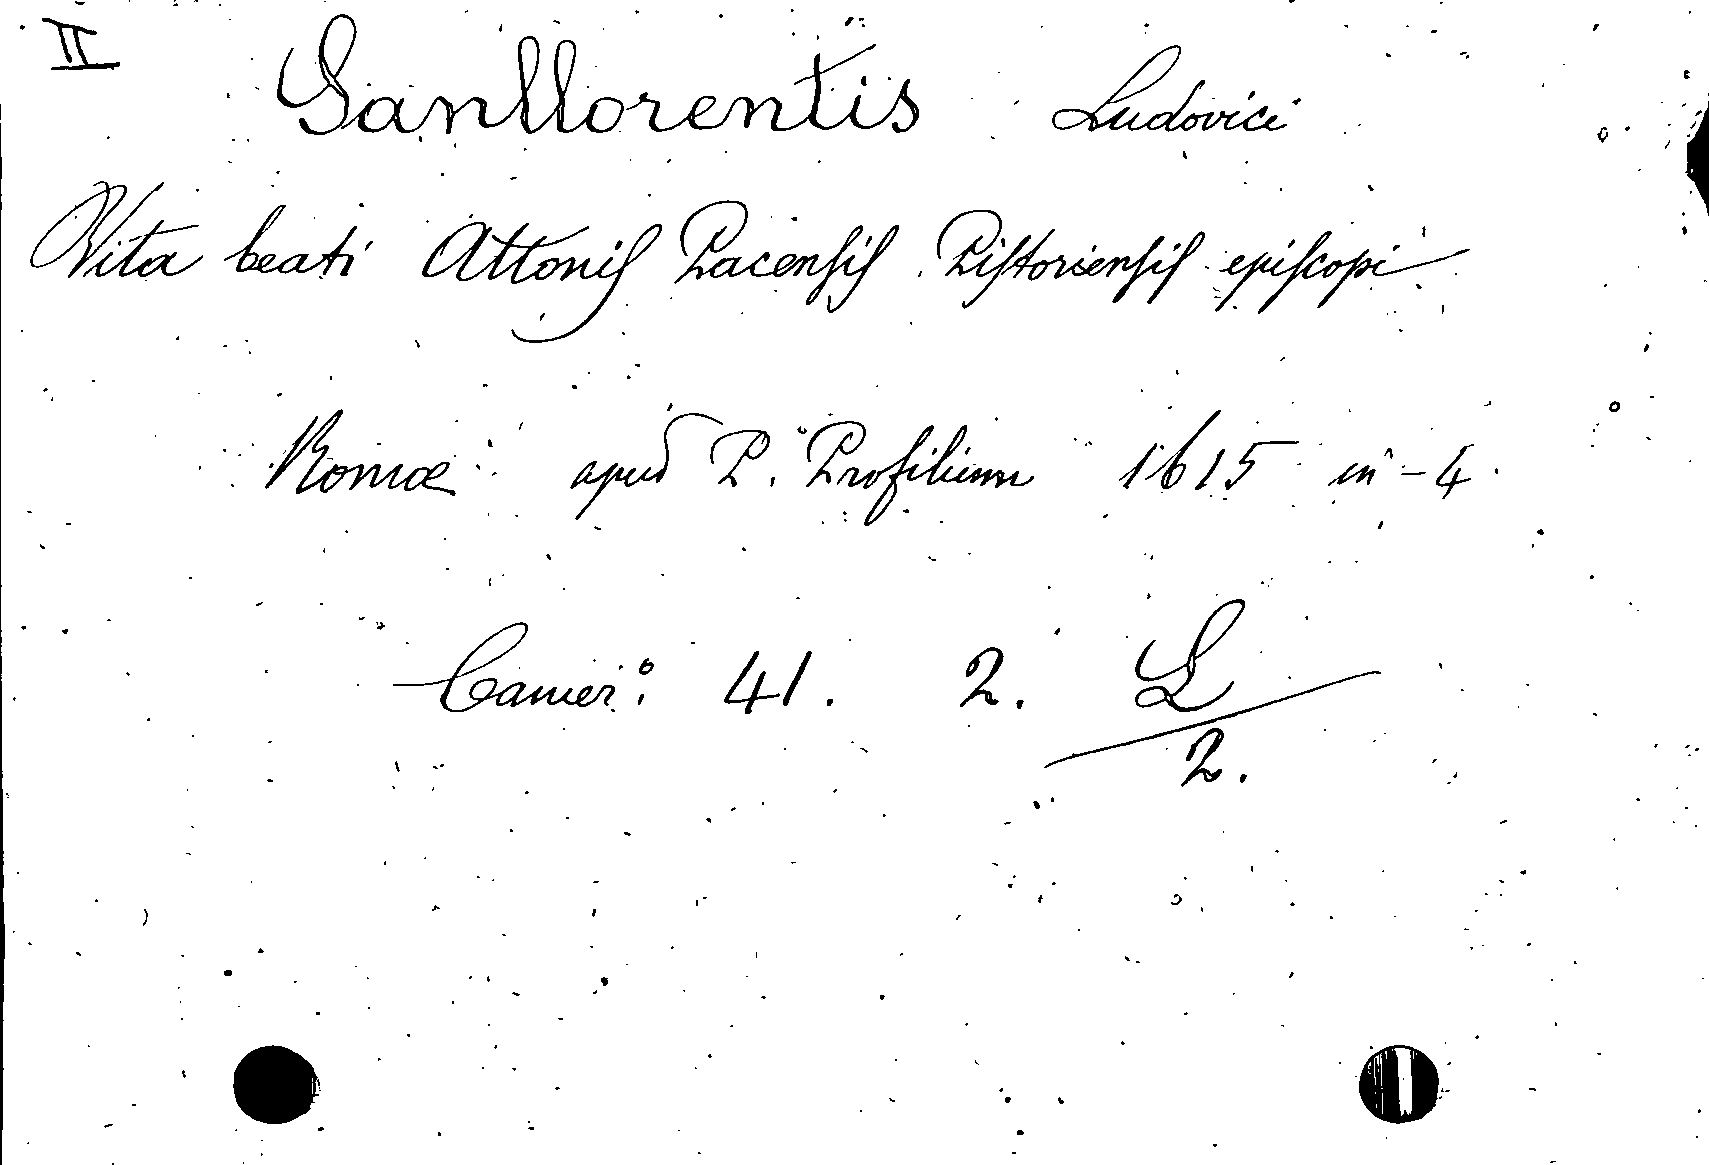 II
Sanllorentis Ludovici
Vita beati Attonis Pacensis Pistoriensis episcopi
Romæ apud P. Profilium 1615 in-4.
Camer: 41. 2. L
2.